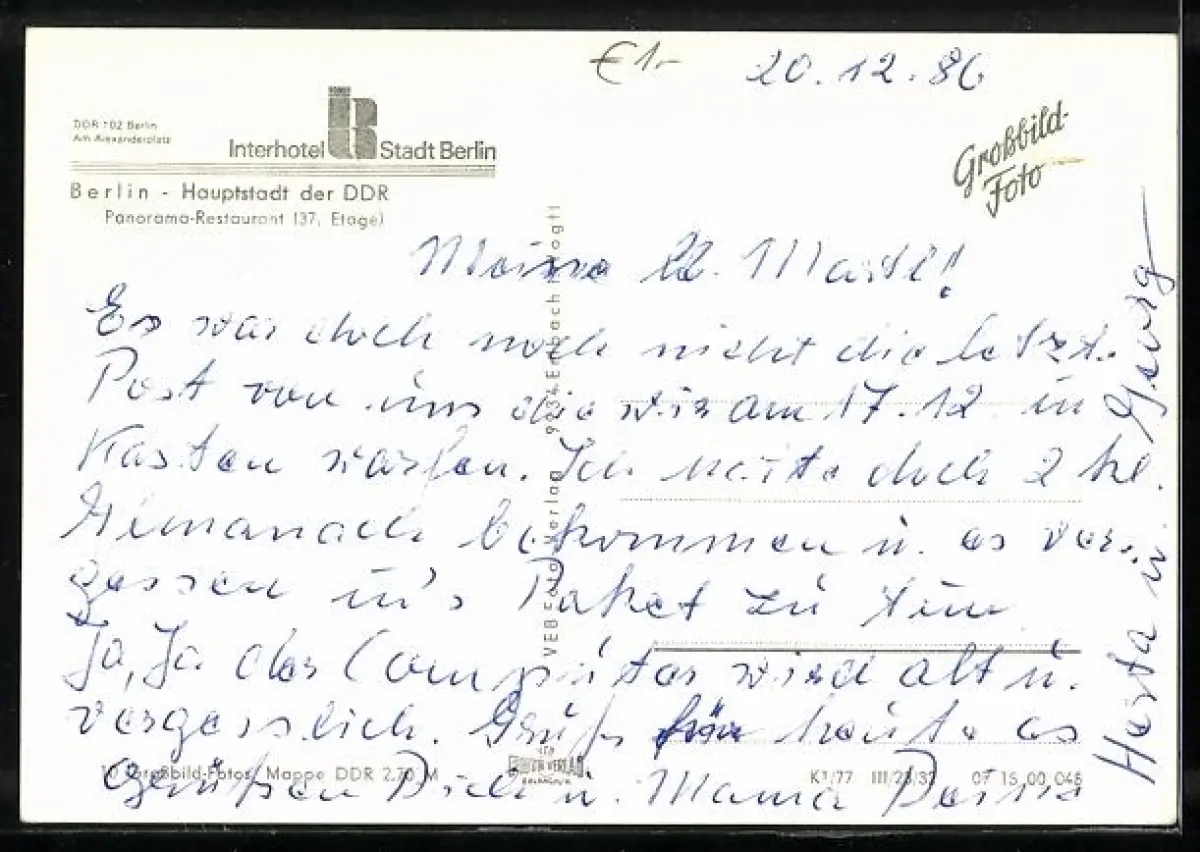 €1.-
20.12.86
DDR 102 Berlin
Am Alexanderplatz
Interhotel Stadt Berlin
Berlin - Hauptstadt der DDR
Panorama-Restaurant (37. Etage)
Großbild-
Foto
Meine
Es war doch noch nicht die letzte
Post von uns die wir am 17.12 in
Kasten warfen. Ich doch 2 kl.
bekommen u. es ver-
gessen in's Paket zu tun
Ja, Ja der Computer wird alt u.
vergesslich. für heute es
grüßen Dich u. Mama Deine
Herta u. Georg
VEB Foto-Verlag 9934 Erlbach Vogtl
10 Großbild-Fotos, Mappe DDR 2,70 M
K1/77 III/26/37 07 15 00 046